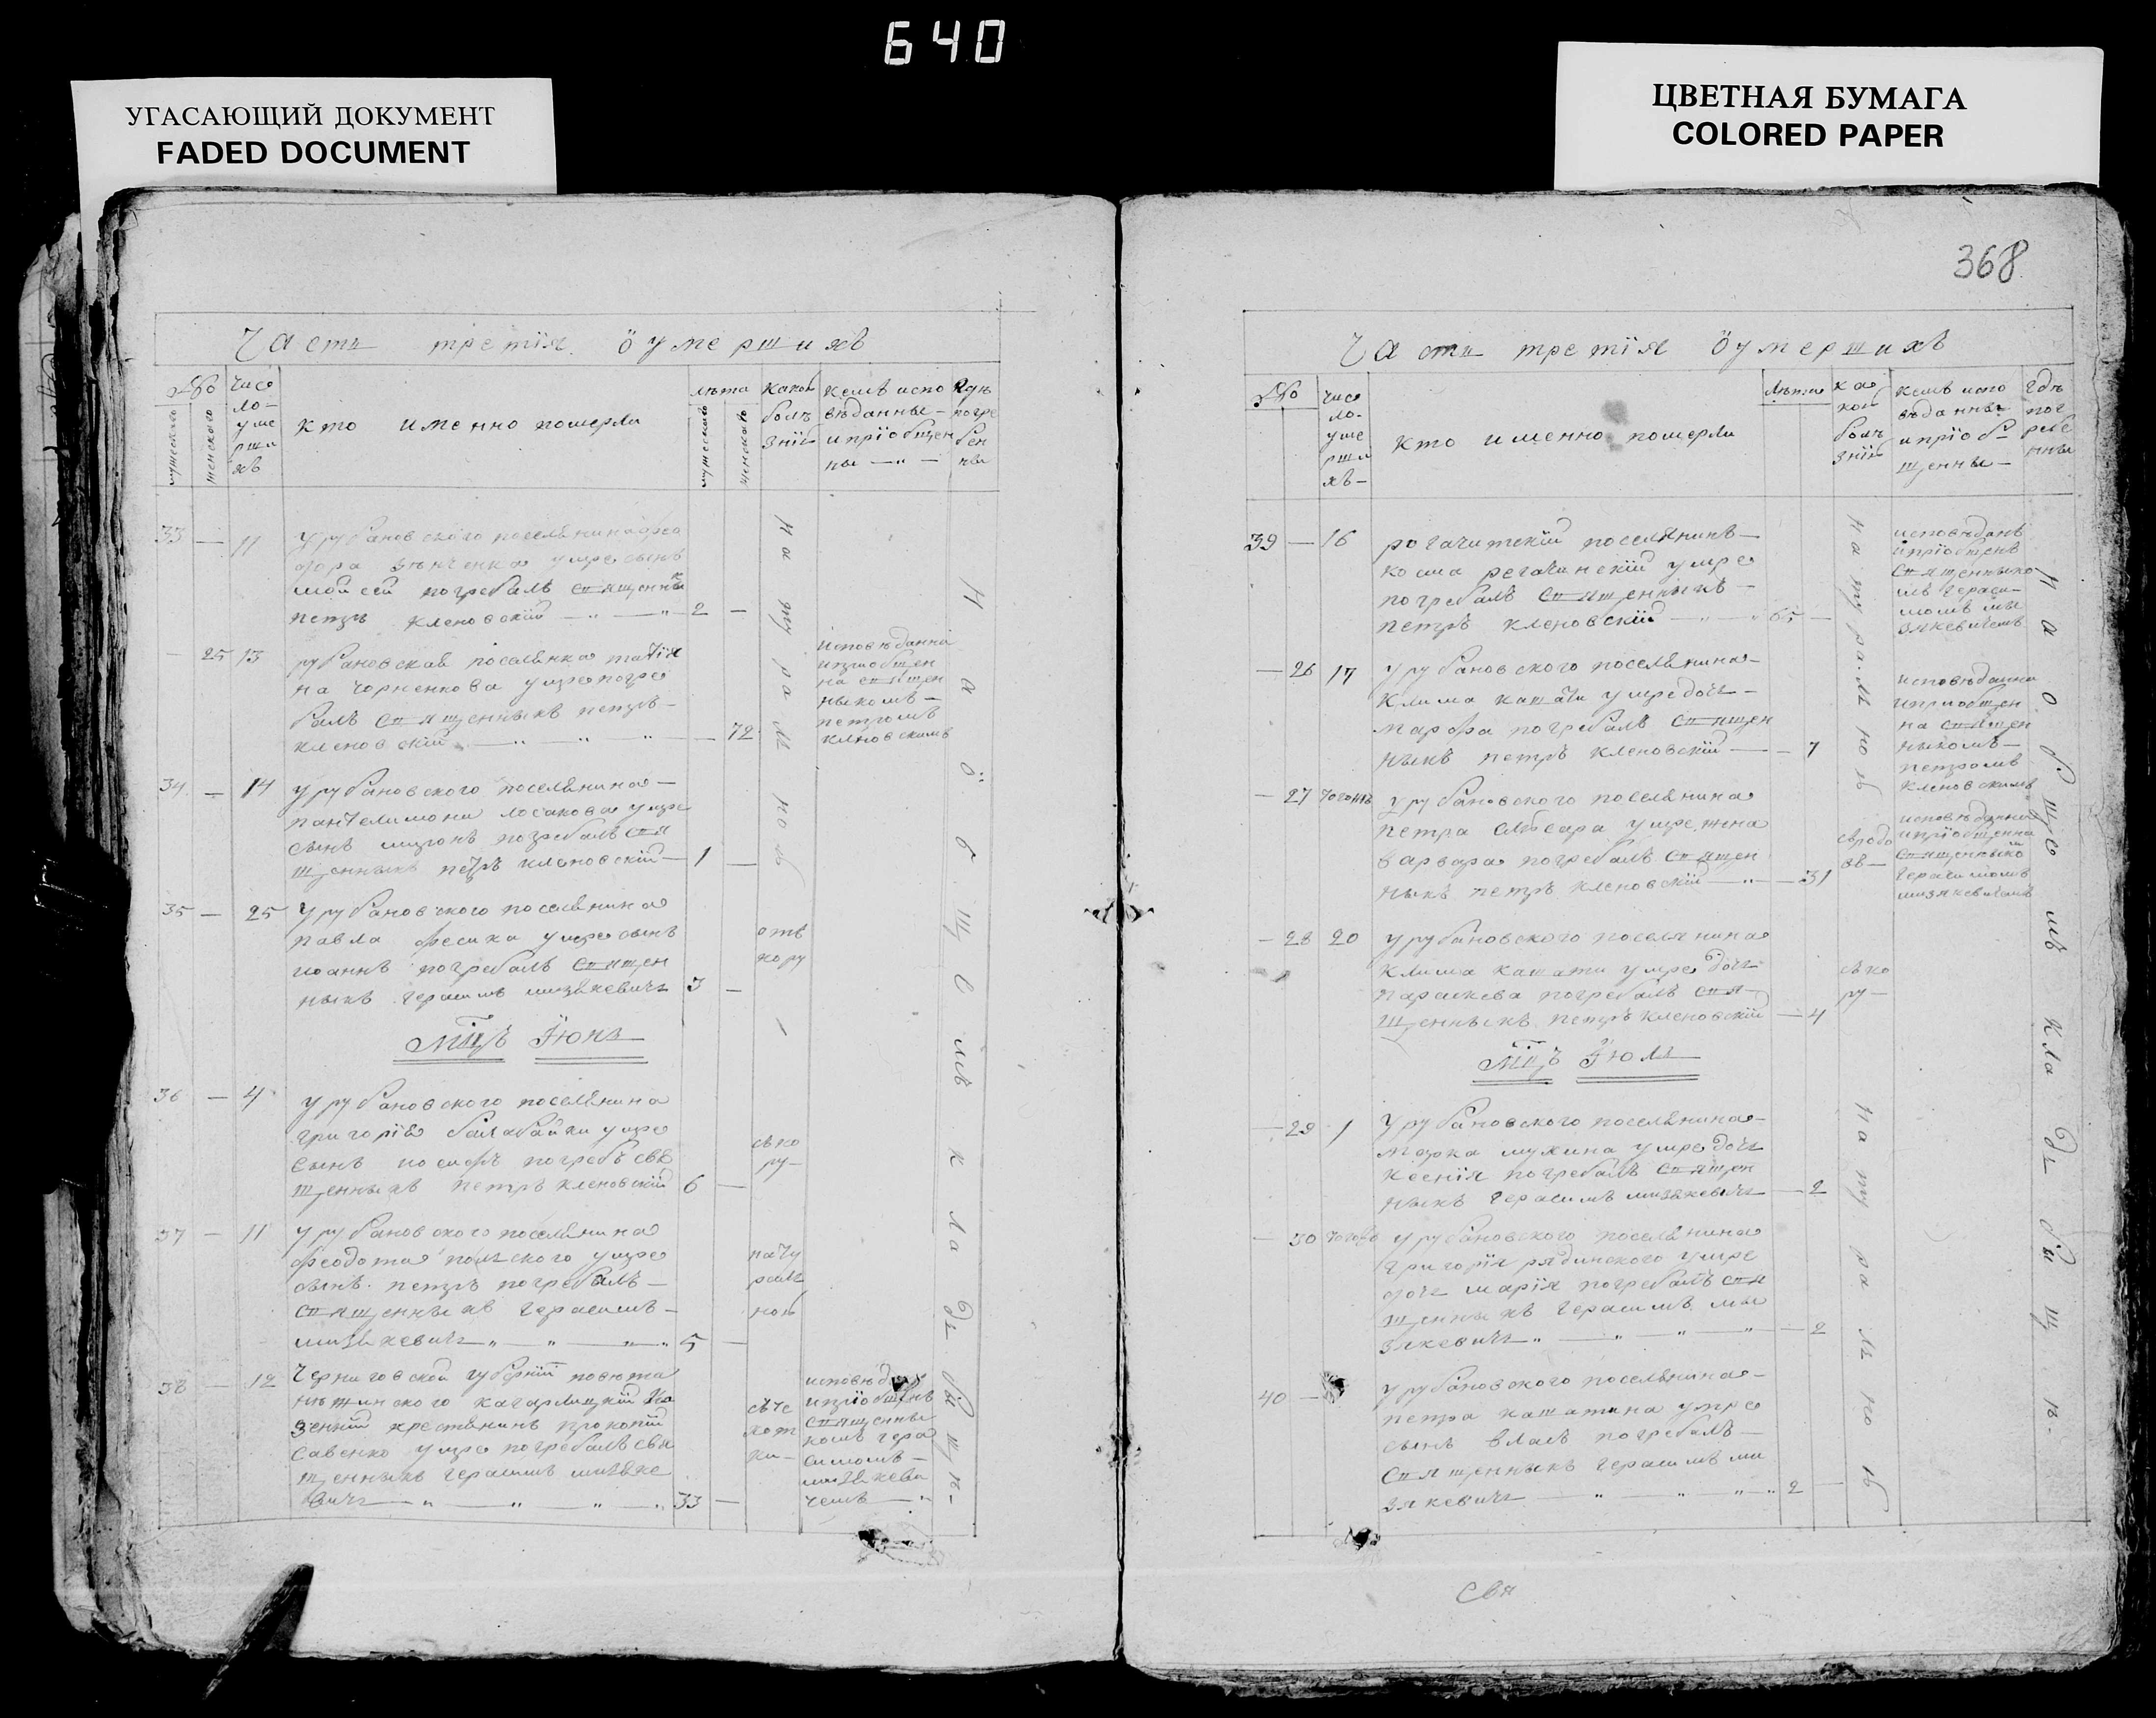 640
УГАСАЮЩИЙ ДОКУМЕНТ
FADED DOCUMENT
ЦВЕТНАЯ БУМАГА
COLORED PAPER
Часть третія оумершихъ
№
мужеска
женскаго
Число умершихъ
кто именно померли
лѣта
какой болѣзній
кемъ исповѣданны и пріобщенны
гдѣ погребенны
33 — 11
У рубановского поселянина Фео
дора Зѣнченка умре сынъ
Мойсей погребалъ священникъ
петръ Кленовскій — 2 —
— 25 13
рубановская поселянка татія
на Чорненкова умре погре
балъ священныкъ петръ
Кленовскій — 72
исповѣданна
и приобщен
на священ
ныкомъ
петромъ
Кленовскимъ
34 — 14
У рубановского поселянина
пантелимона Лосакова умре
сынъ миронъ погребалъ свя
щенныкъ петръ Кленовскій — 1 —
35 — 25
У рубановского поселянина
павла Фесика умре сынъ
иоаннъ погребалъ священ
ныкъ Герасимъ мизякевичъ 3 —
отъ
кору
Мцъ Іюнь
36 — 4
У рубановского поселянина
григорія балабайки умре
сынъ иосифъ погребъ свя
щенныкъ петръ Кленовскій 6 —
съ ко
ру
37 — 11
У рубановского поселянина
Феодота польского умре
сынъ петръ погребалъ
священныкъ Герасимъ
мизякевичъ 5 —
нату
раль
ной
38 — 12
Черниговской губерній повѣта
нѣжинского кагарлицкій ка
зенній крестянинъ прокопій
Савенко умре погребалъ свя
щенныкъ Герасимъ мизяке
вичъ — 33 —
исповѣданъ
и пріобщенъ
священны
комъ Гера
симомъ
мизякеви
чемъ
натуральной
На общемъ кладьбищѣ
368
Часть третія оумершихъ
№
Число умершихъ
кто именно померли
Лѣта
какой болѣзній
кемъ испо
вѣданны
и пріоб
щенны
гдѣ погребенны
39 — 16
рогачитскій поселянинъ
Косма рогачинскій умре
погребалъ священныкъ
петръ Кленовскій — 65 —
исповѣданъ
и пріобщенъ
священныко
мъ Гераси
момъ мы
зякевичемъ
— 26 17
У рубановского поселянина
Клима кашати умре дочь
Марфа погребалъ священ
ныкъ петръ Кленовскій — 7
исповѣданна
и приобщен
на священ
ныкомъ
петромъ
Кленовскимъ
— 27 Тогожъ
У рубановского поселянина
петра умре жена
варвара погребалъ священ
ныкъ петръ Кленовскій — 31
съ родо
въ
исповѣданна
и пріобщенна
священныко
Герасимомъ
мизякевичемъ
— 28 20
У рубановского поселянина
Клима кашати умре дочь
параскева погребалъ свя
щенныкъ петръ Кленовскій — 4
съ ко
ру
Мцъ Іюль
— 29 1
У рубановского поселянина
Марка мухина умре дочь
Ксенія погребалъ священ
ныкъ Герасимъ мизякевичъ — 2
— 30 Тогожъ
У рубановского поселянина
григорія рядинского умре
дочь марія погребалъ свя
щенныкъ Герасимъ мы
зякевичъ — 2
40 —
У рубановского поселянина
петра кашатина умре
сынъ власъ погребалъ
священныкъ Герасимъ ми
зякевичъ 2 —
натуральной
натуральной
На общемъ кладьбищѣ
Свя